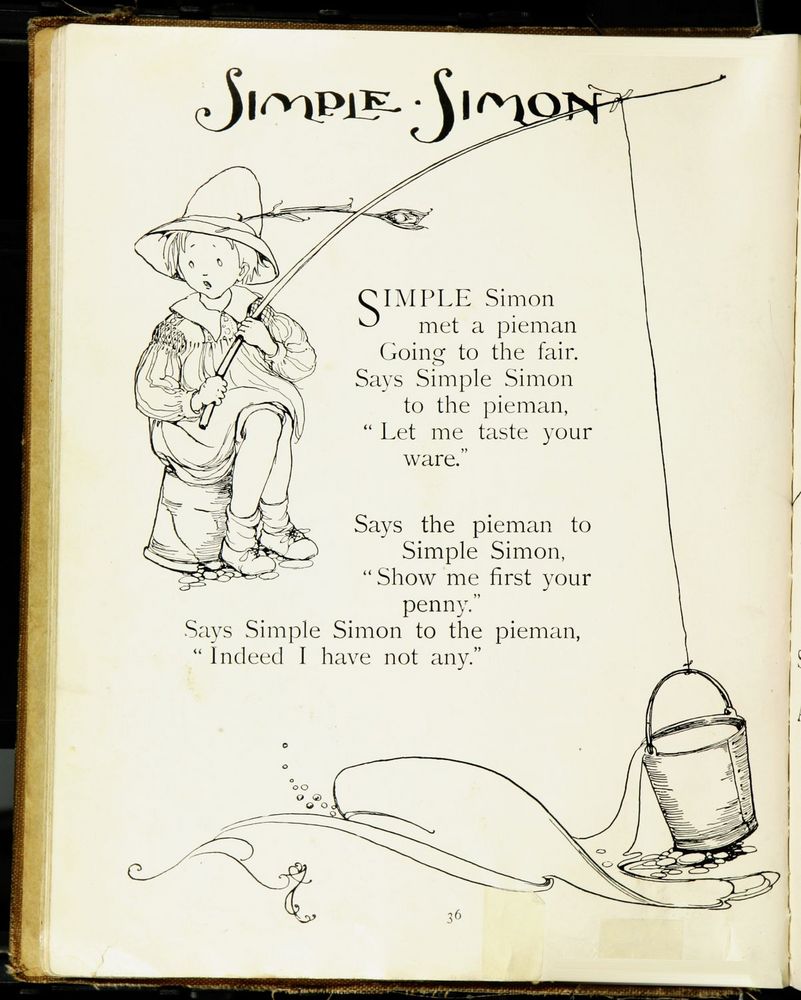 SIMPLE · SIMON
SIMPLE Simon
met a pieman
Going to the fair.
Says Simple Simon
to the pieman,
“ Let me taste your
ware.”
Says the pieman to
Simple Simon,
“ Show me first your
penny.”
Says Simple Simon to the pieman,
“ Indeed I have not any.”
36